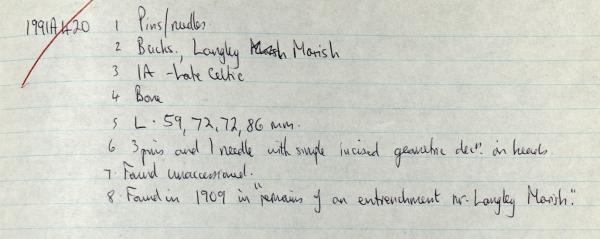 1991A420 1 Pins/needles
2 Bucks, Langley Marish
3 IA - Late Celtic
4 Bone
5 L. 59, 72, 72, 86 mm.
6 3 pins and 1 needle with simple incised geometric decn. on heads
7. Found unaccessioned.
8. Found in 1909 in "remains of an entrenchment nr. Langley Marish."